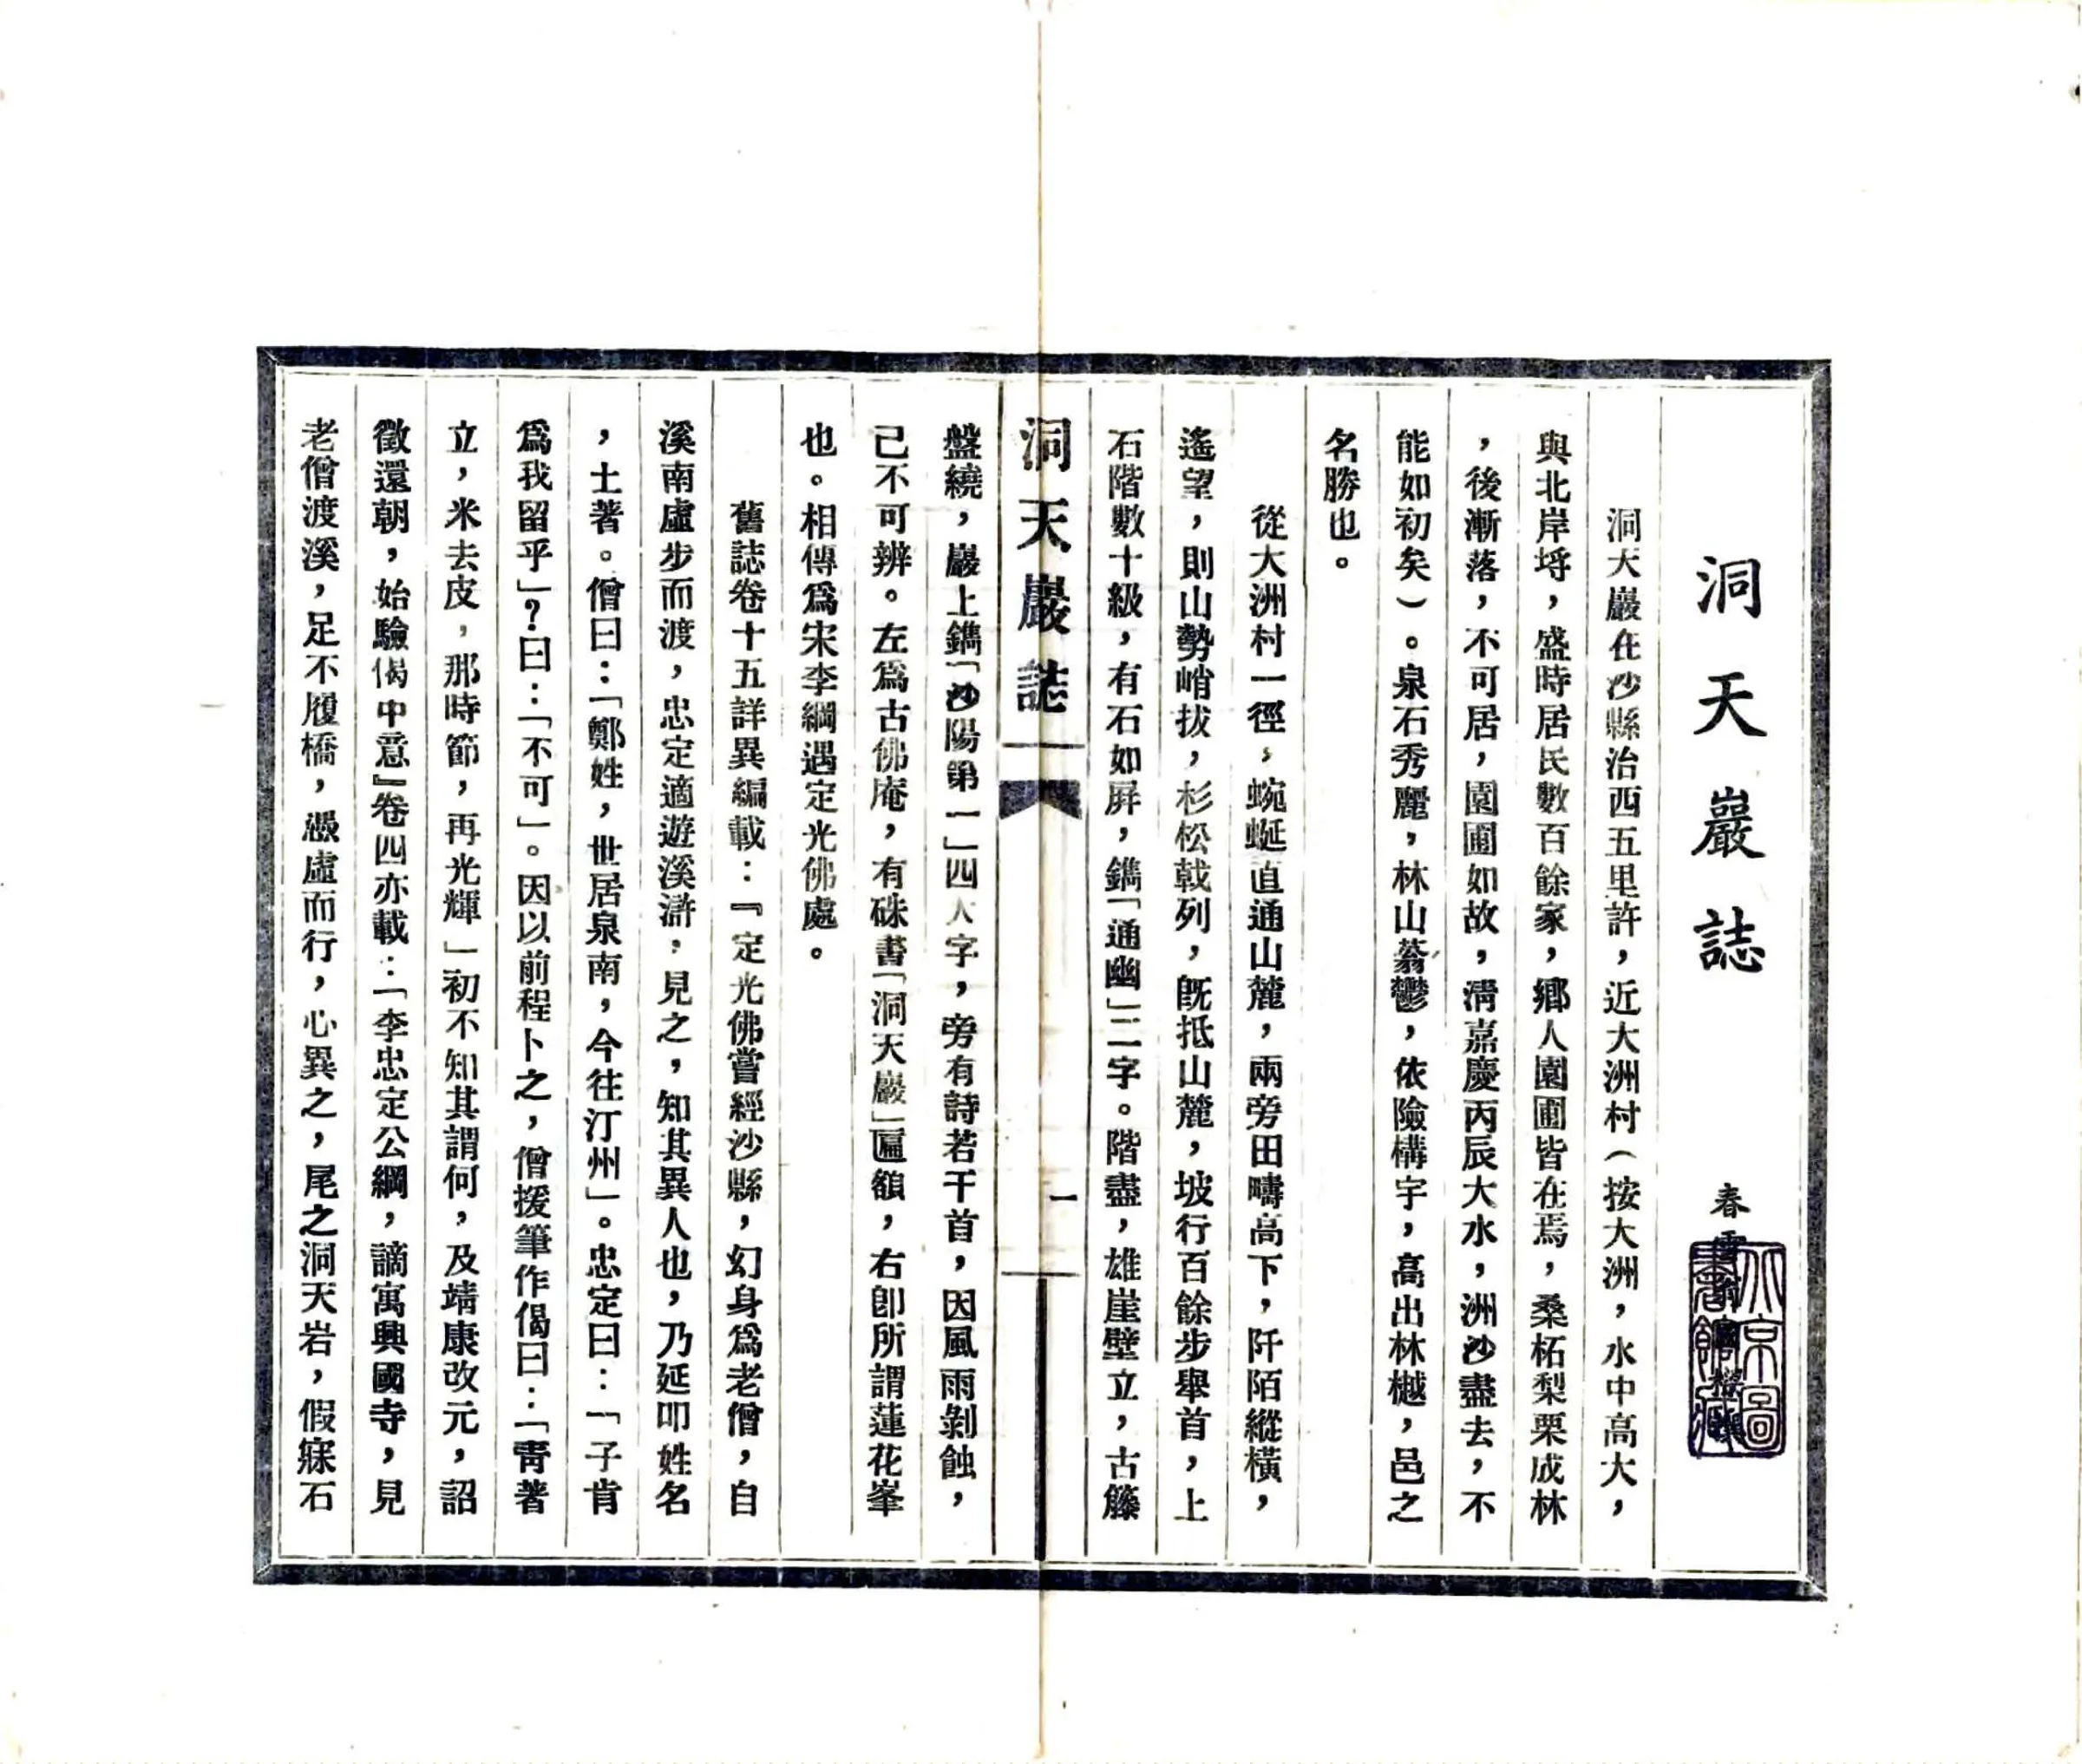 洞天巖誌
春
洞天巖在沙縣治西五里許，近大洲村（按大洲，水中高大，
與北岸埒，盛時居民數百餘家，鄉人園圃皆在焉，桑柘梨栗成林
，後漸落，不可居，園圃如故，淸嘉慶丙辰大水，洲沙盡去，不
能如初矣）。泉石秀麗，林山蓊鬱，依險構宇，高出林樾，邑之
名勝也。
從大洲村一徑，蜿蜒直通山麓，兩旁田疇高下，阡陌縱橫，
遙望，則山勢峭拔，杉松戟列，旣抵山麓，坡行百餘步舉首，上
石階數十級，有石如屛，鐫「通幽」二字。階盡，雄崖壁立，古籐
洞天巖誌
一
盤繞，巖上鐫「沙陽第一」四大字，旁有詩若干首，因風雨剝蝕，
已不可辨。左爲古佛庵，有硃書「洞天巖」匾額，右卽所謂蓮花峯
也。相傳爲宋李綱遇定光佛處。
舊誌卷十五詳異編載：『定光佛嘗經沙縣，幻身爲老僧，自
溪南虛步而渡，忠定適遊溪滸，見之，知其異人也，乃延叩姓名
，土著。僧曰：「鄭姓，世居泉南，今往汀州」。忠定曰：「子肯
爲我留乎」？曰：「不可」。因以前程卜之，僧援筆作偈曰：「靑著
立，米去皮，那時節，再光輝」初不知其謂何，及靖康改元，詔
徵還朝，始驗偈中意』卷四亦載：「李忠定公綱，謫寓興國寺，見
老僧渡溪，足不履橋，憑虛而行，心異之，尾之洞天岩，假寐石